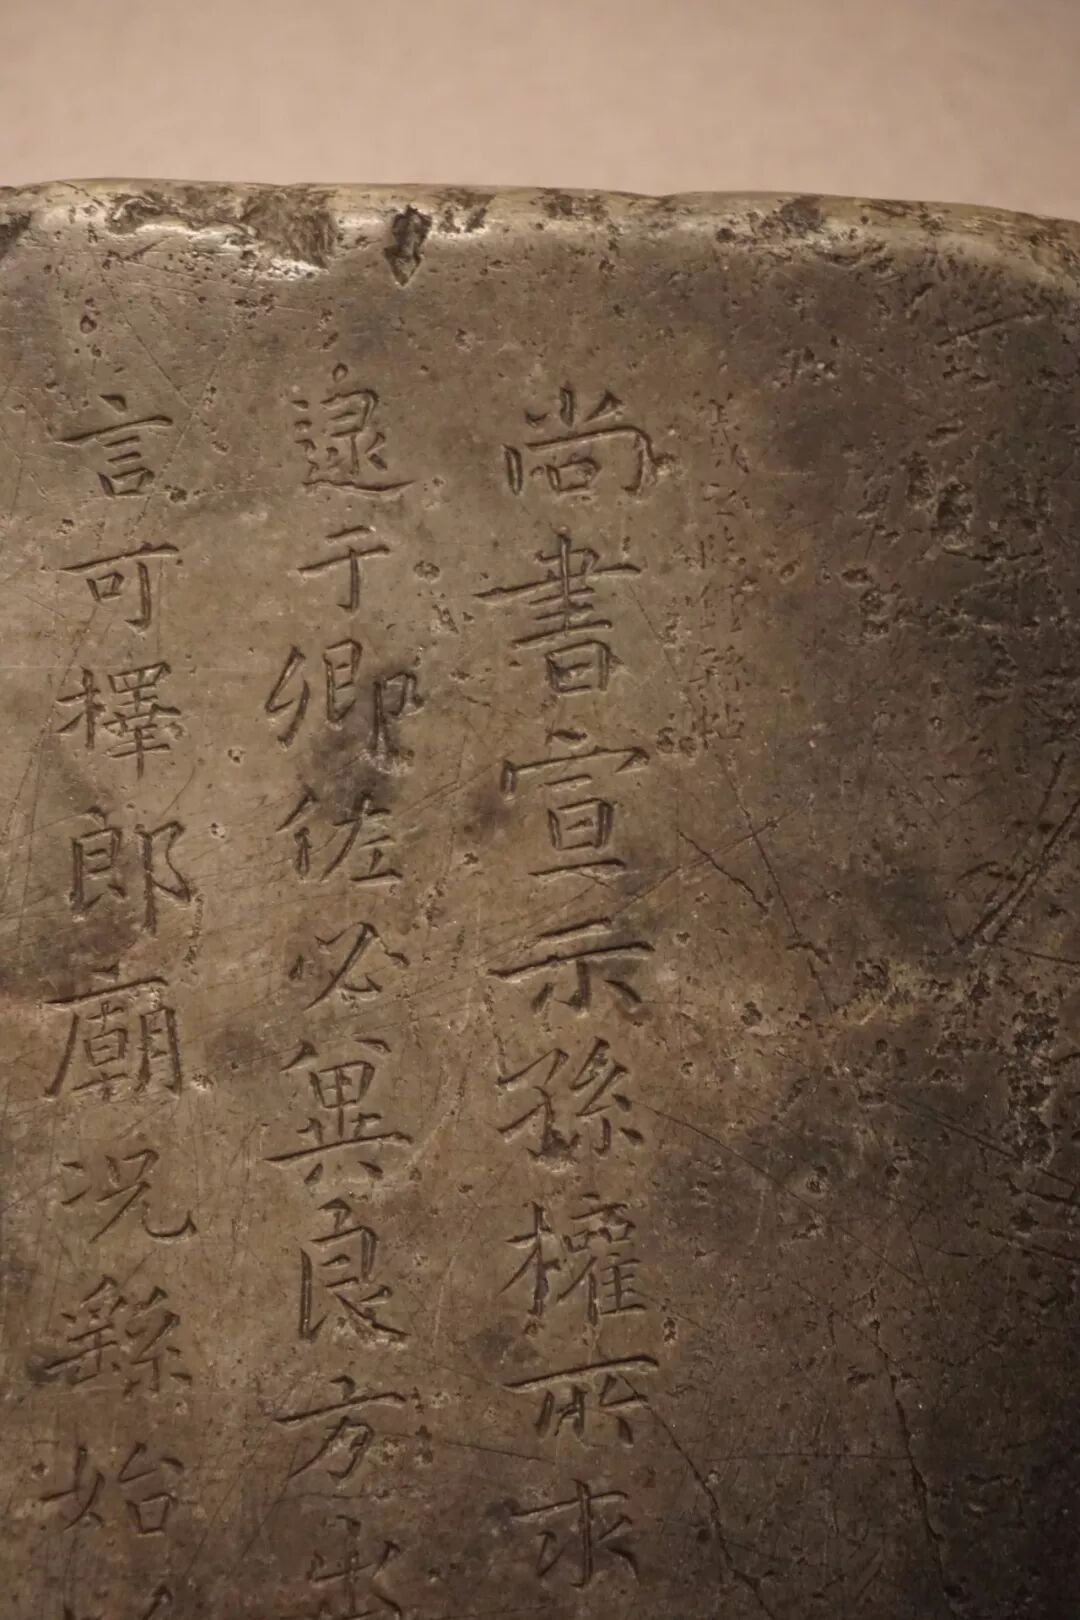 尚書宣示孫權所求
逮于卿佐必兾良方出
言可擇郎廟況繇始